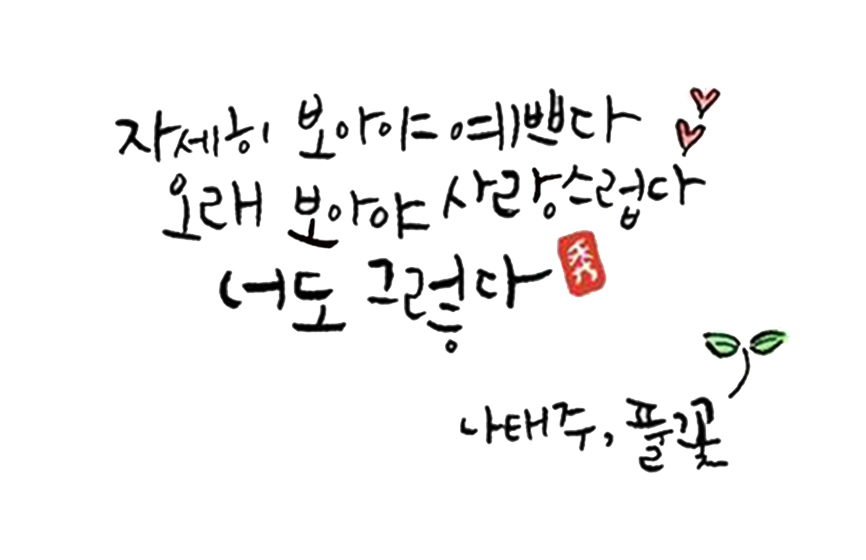 자세히 보아야 예쁘다
오래 보아야 사랑스럽다
너도 그렇다
秀
나태주, 풀꽃